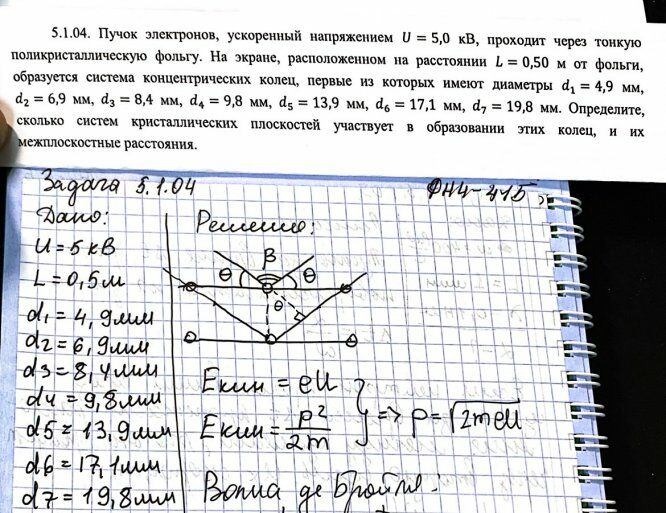 5.1.04. Пучок электронов, ускоренный напряжением U = 5,0 кВ, проходит через тонкую
поликристаллическую фольгу. На экране, расположенном на расстоянии L = 0,50 м от фольги,
образуется система концентрических колец, первые из которых имеют диаметры d₁ = 4,9 мм,
d₂ = 6,9 мм, d₃ = 8,4 мм, d₄ = 9,8 мм, d₅ = 13,9 мм, d₆ = 17,1 мм, d₇ = 19,8 мм. Определите,
сколько систем кристаллических плоскостей участвует в образовании этих колец, и их
межплоскостные расстояния.
Задача 5.1.04
ФН4-41Б
Дано:
U = 5 кВ
L = 0,5 м
d1 = 4,9мм
d2 = 6,9мм
d3 = 8,4мм
d4 = 9,8мм
d5 = 13,9мм
d6 = 17,1мм
d7 = 19,8мм
Решение:
θ β θ
θ
Eкин = eU
Eкин = p²/2m } => p = √2meU
Волна де Бройля: